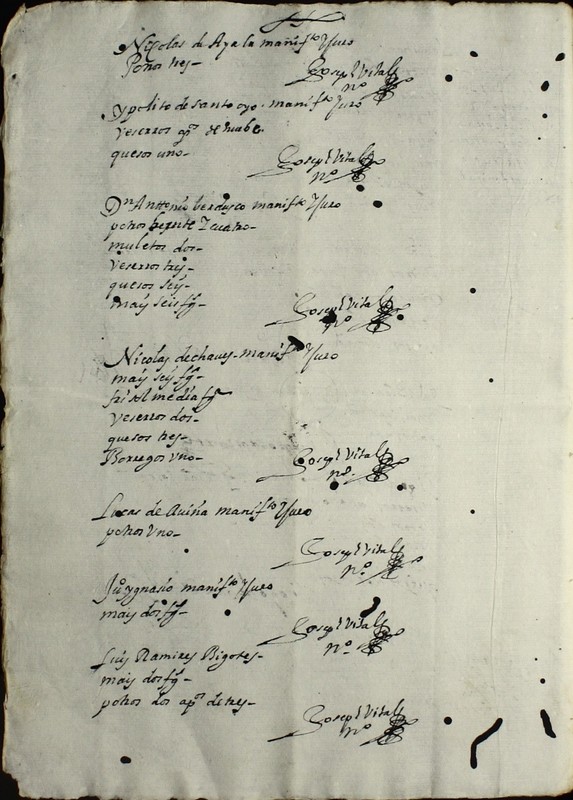 Nicolas de Ayala manifto Yuro
Potros tres-
Joseph Vital
no
ypolito de santoyo. manifto Yuro
veserros de nube.
quesos uno-
Joseph Vital
no
Dn Anttonio berdusco manifto Yuro
potros beynte Y cuatro-
muletos dos-
veserros trey-
quesos seys-
mays seis fg-
Joseph Vital
no
Nicolas de chaves. manifto Yuro
mays seys fg-
frisol media fg
veserros dos-
quesos tres-
Borregos Uno-
Joseph Vital
no.
Lucas de Auiña manifto Yuro
potros Uno-
Joseph Vital
no
Juo ygnasio manifto Yuro
mais dos fg-
Joseph Vital
no
Luis Ramires Bigotes-
mais dos fg-
potros dos apos de tres-
Joseph Vital
no